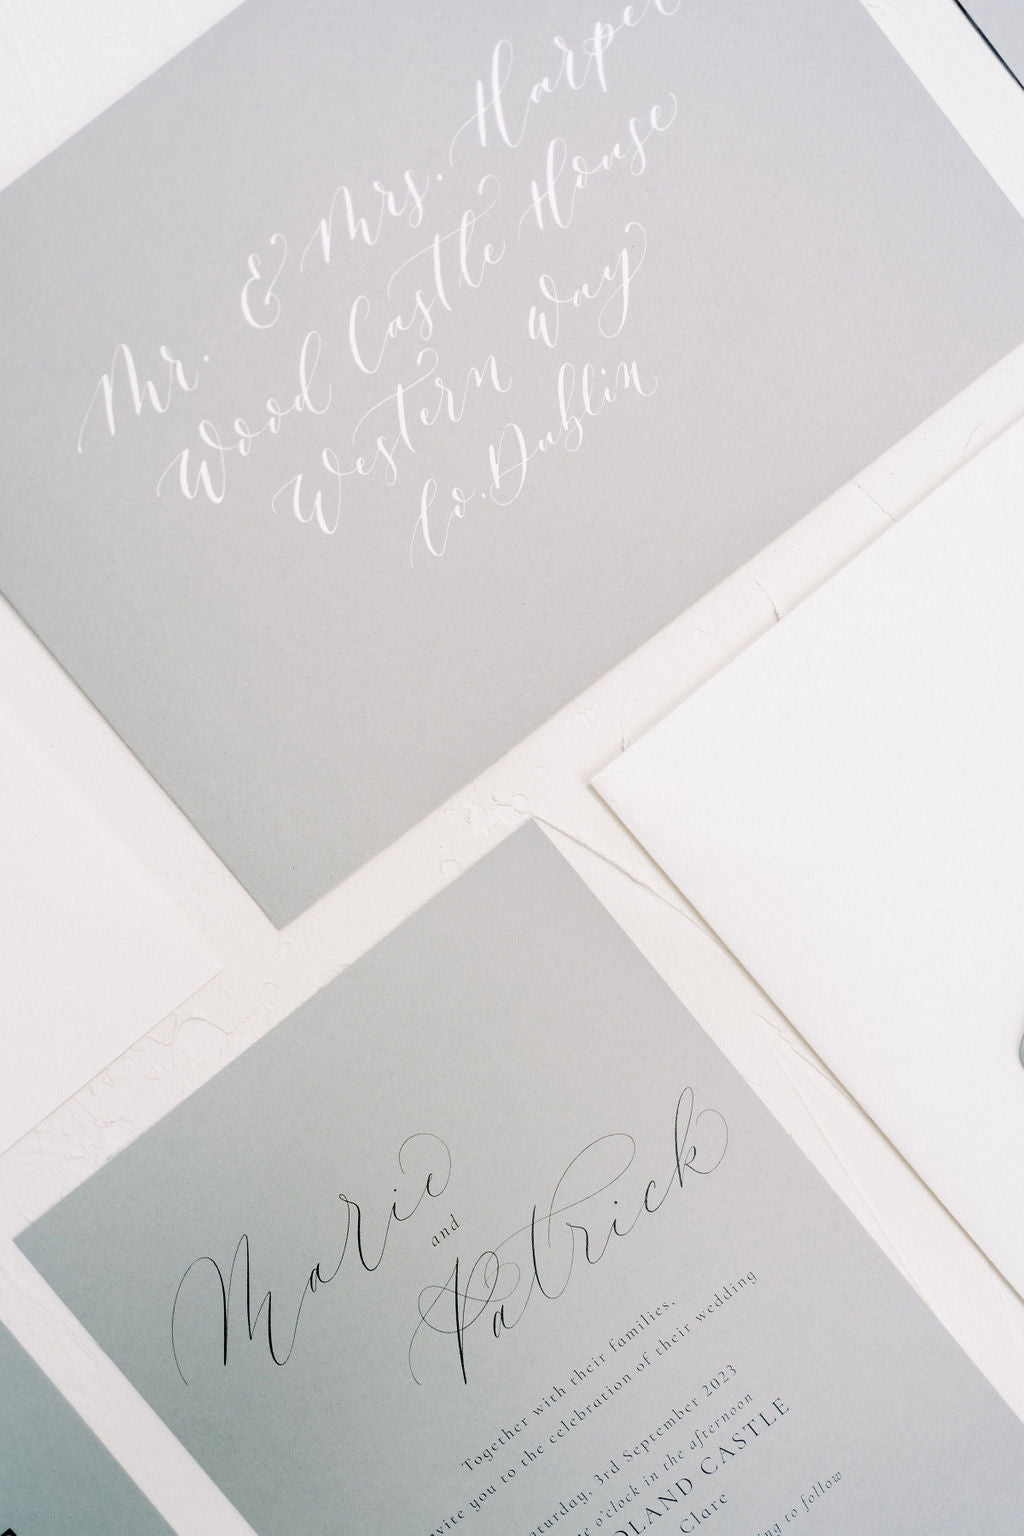 Mr. & Mrs. Harper
Wood Castle House
Western Way
Co. Dublin
Marie
and
Patrick
Together with their families,
invite you to the celebration of their wedding
Saturday, 3rd September 2023
o'clock in the afternoon
CASTLE
Clare
to follow